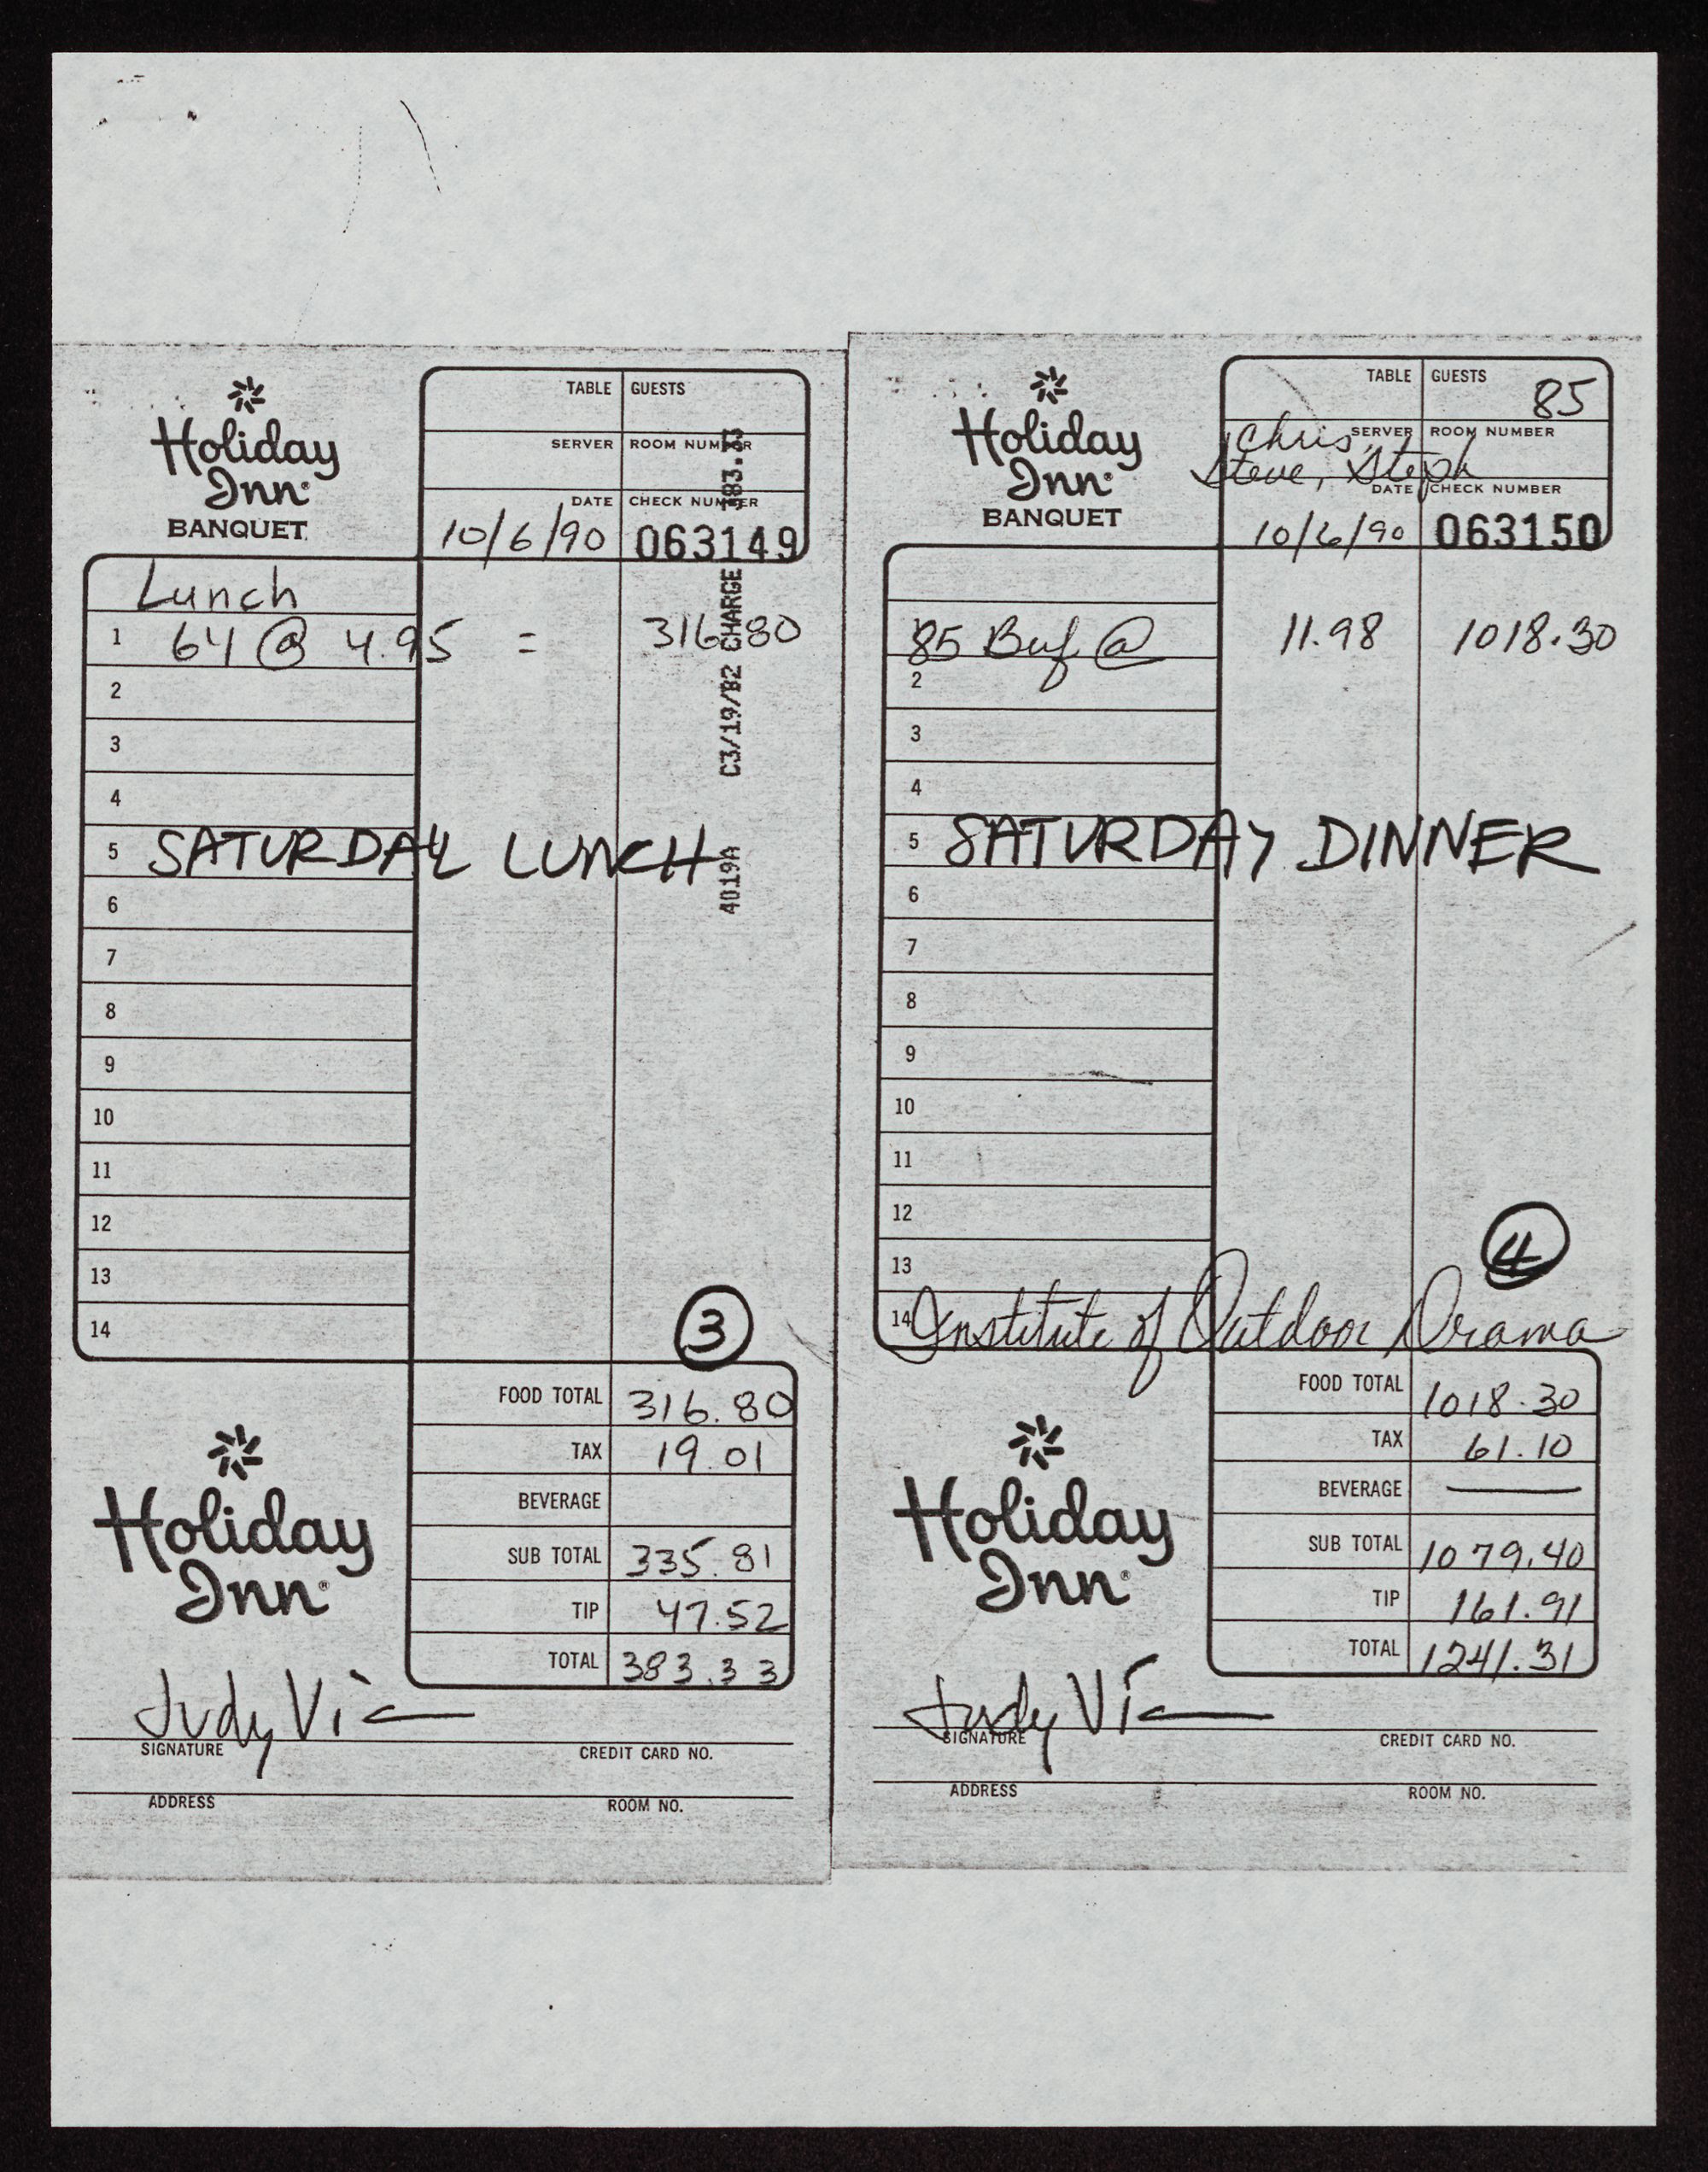 Holiday
Inn
BANQUET
TABLE GUESTS
SERVER ROOM NUMBER
DATE CHECK NUMBER
10/6/90 063149
Lunch
1 64 @ 4.95 = 316.80
2
3
4
5 SATURDAY LUNCH
6
7
8
9
10
11
12
13
14
3
4019A C3/19/B2 CHARGE 383.33
FOOD TOTAL 316.80
TAX 19.01
BEVERAGE
SUB TOTAL 335.81
TIP 47.52
TOTAL 383.33
Holiday
Inn
Judy
SIGNATURE CREDIT CARD NO.
ADDRESS ROOM NO.
Holiday
Inn
BANQUET
TABLE GUESTS 85
SERVER ROOM NUMBER
Chris,
Steve, Steph
DATE CHECK NUMBER
10/6/90 063150
85 Buf @ 11.98 1018.30
2
3
4
5 SATURDAY DINNER
6
7
8
9
10
11
12
13
4
14 Institute of Outdoor Drama
FOOD TOTAL 1018.30
TAX 61.10
BEVERAGE —
SUB TOTAL 1079.40
TIP 161.91
TOTAL 1241.31
Holiday
Inn
Judy
SIGNATURE CREDIT CARD NO.
ADDRESS ROOM NO.